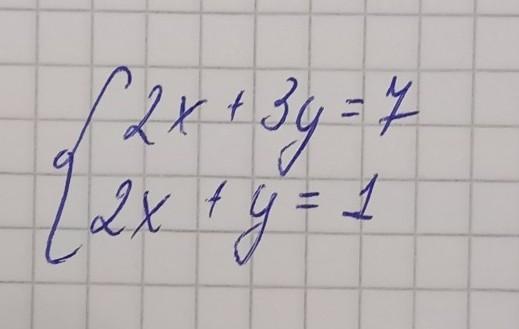 2x + 3y = 7
2x + y = 1